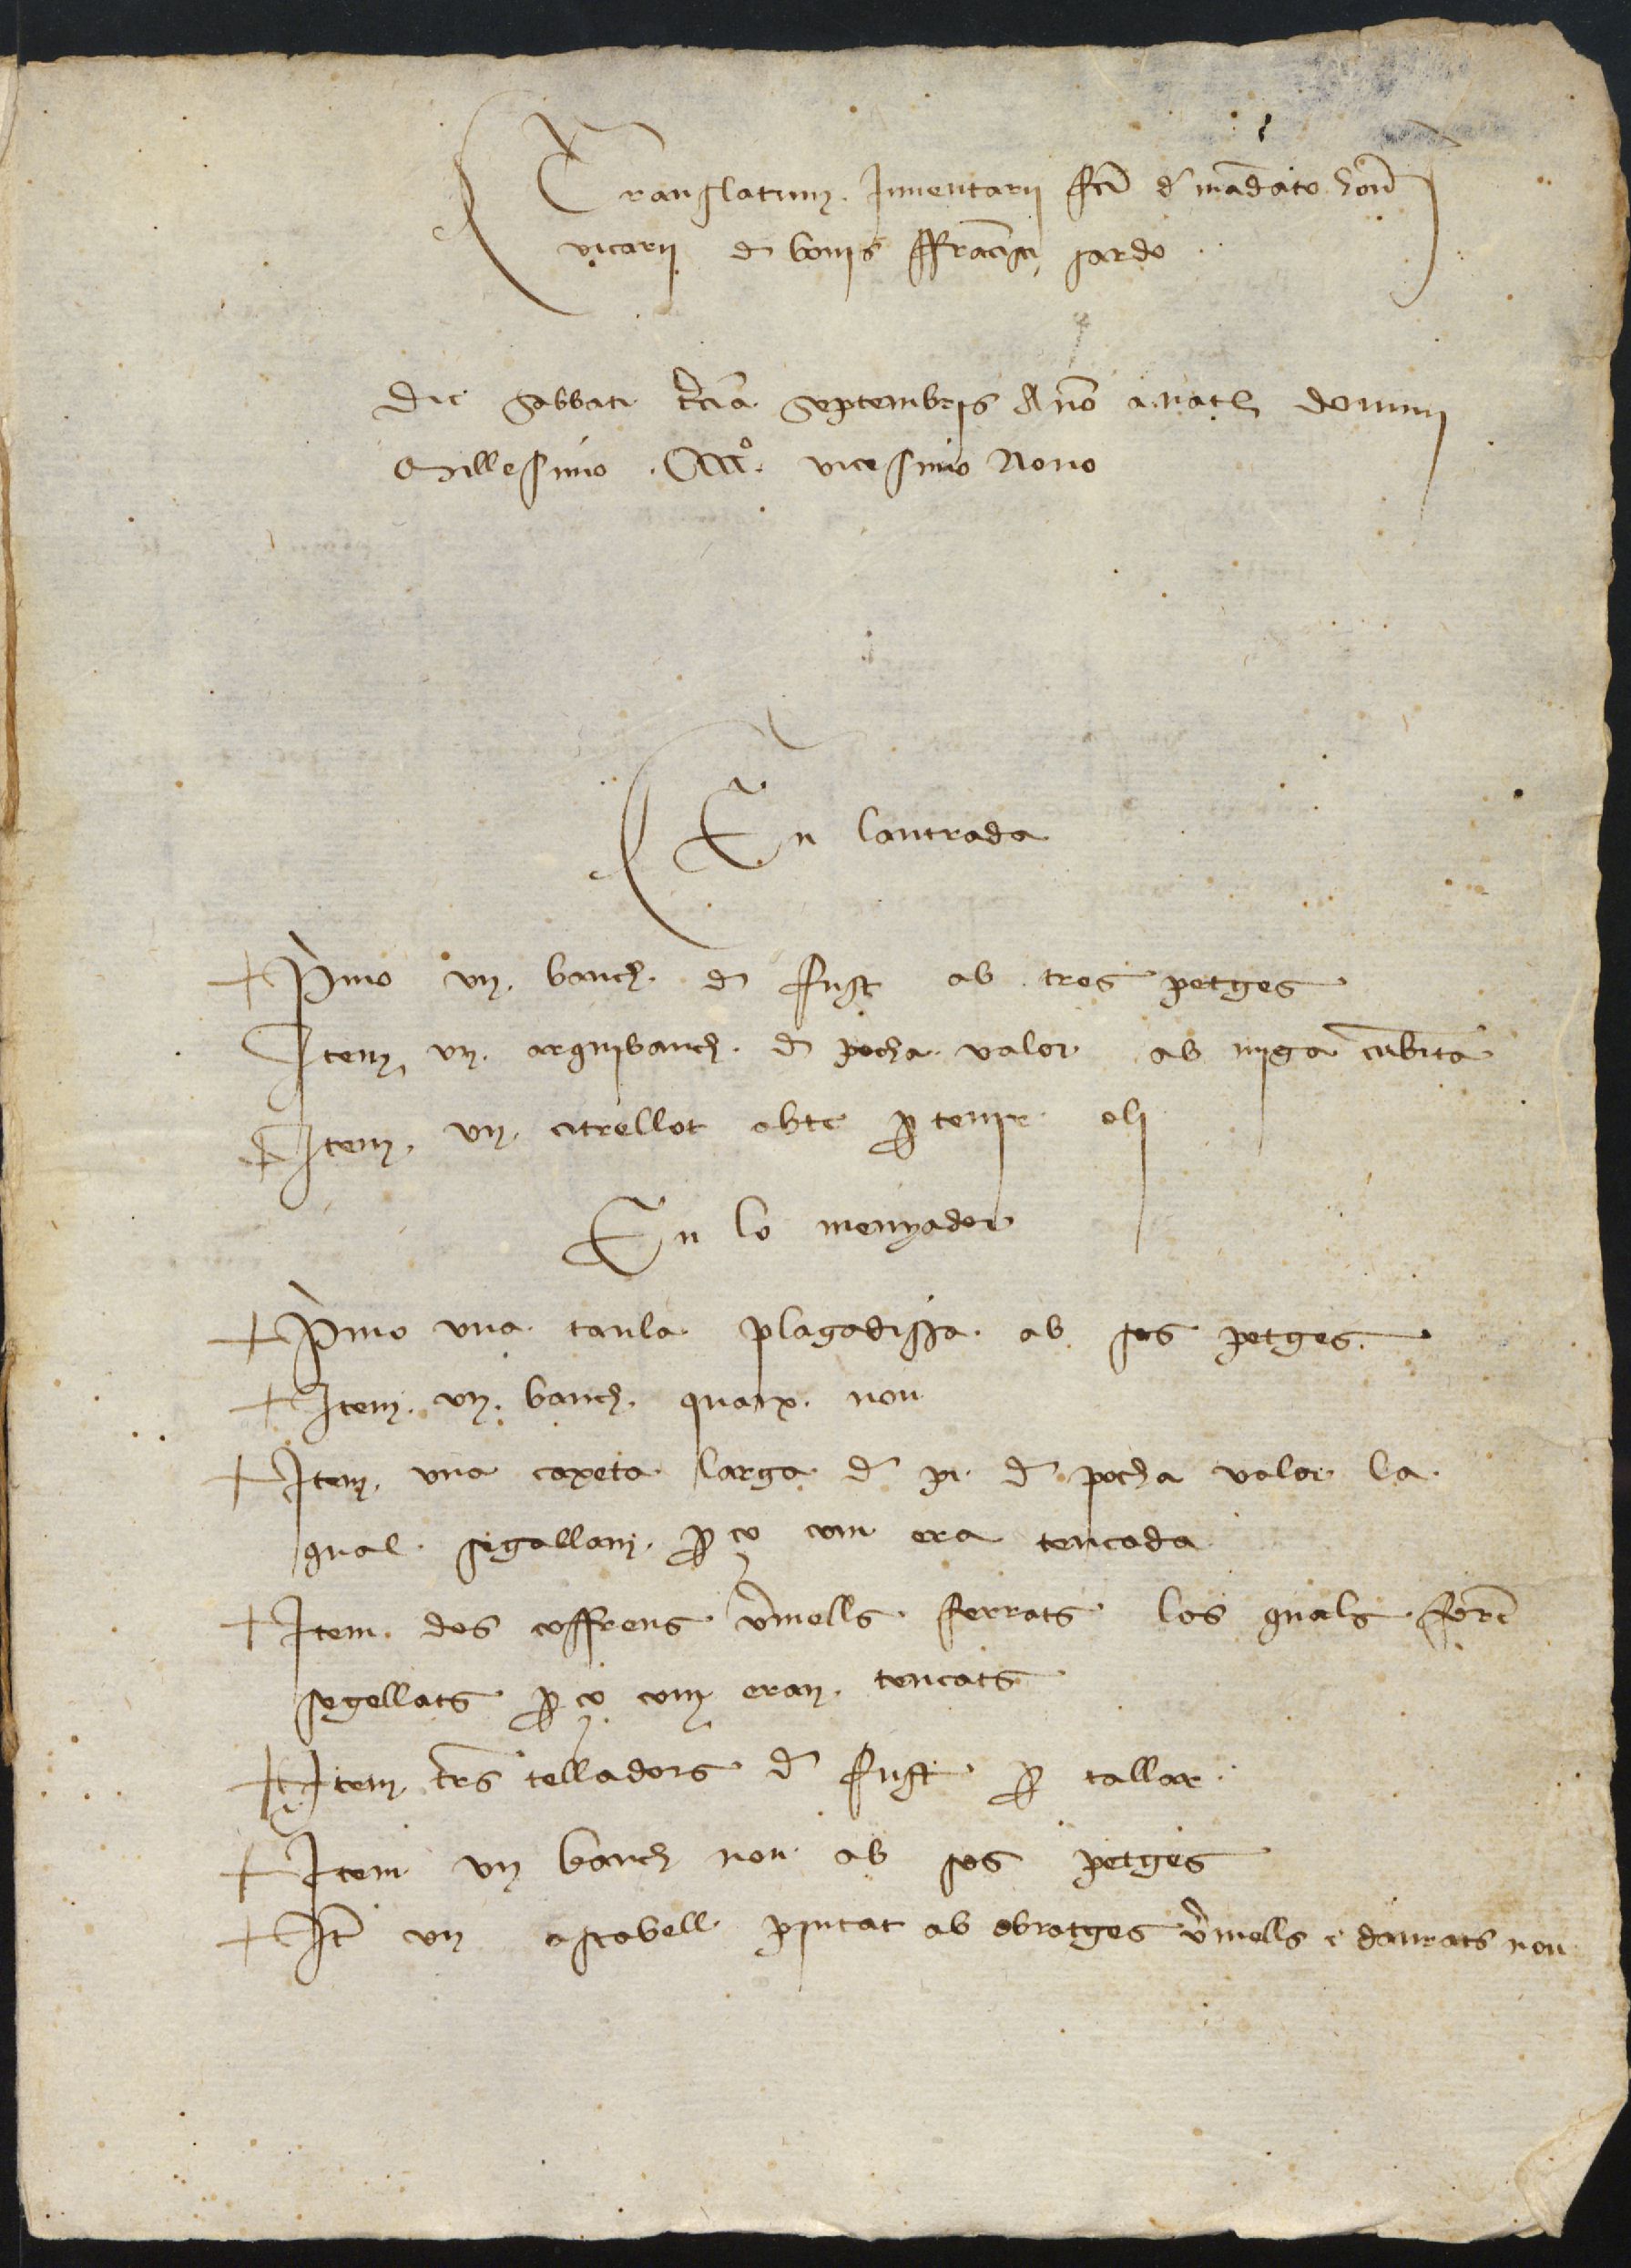 Translatum Inventarii fcī d mādato hon
vicarii d bonis ffrācisci sardo
Die Sabbati t̄cia Septembris Año a natł domini
Millesimo CCCC° vicesimo Nono
En lantrada
P̄mo vn banch d fust ab tres petges
Item vn arquibanch d pocha valor ab miga cubḡta
Item vn citrellot obte p̱ tenir oli
En lo menyador
P̄mo vna taula plagadissa ab sos petges
Item vn banch quaix nou
Item vna caxeta larga d pi d pocha valor la
qual segallam p̱ ço com era tencada
Item dos coffrens v̄mells ferrats los quals forē
segellats p̱ ço com eran tencats
Item trs̄ talladors d fust p̱ tallar
Item vn banch nou ab sos petges
It̄ vn ascabell pintat ab obratges v̄mells e daurats nou